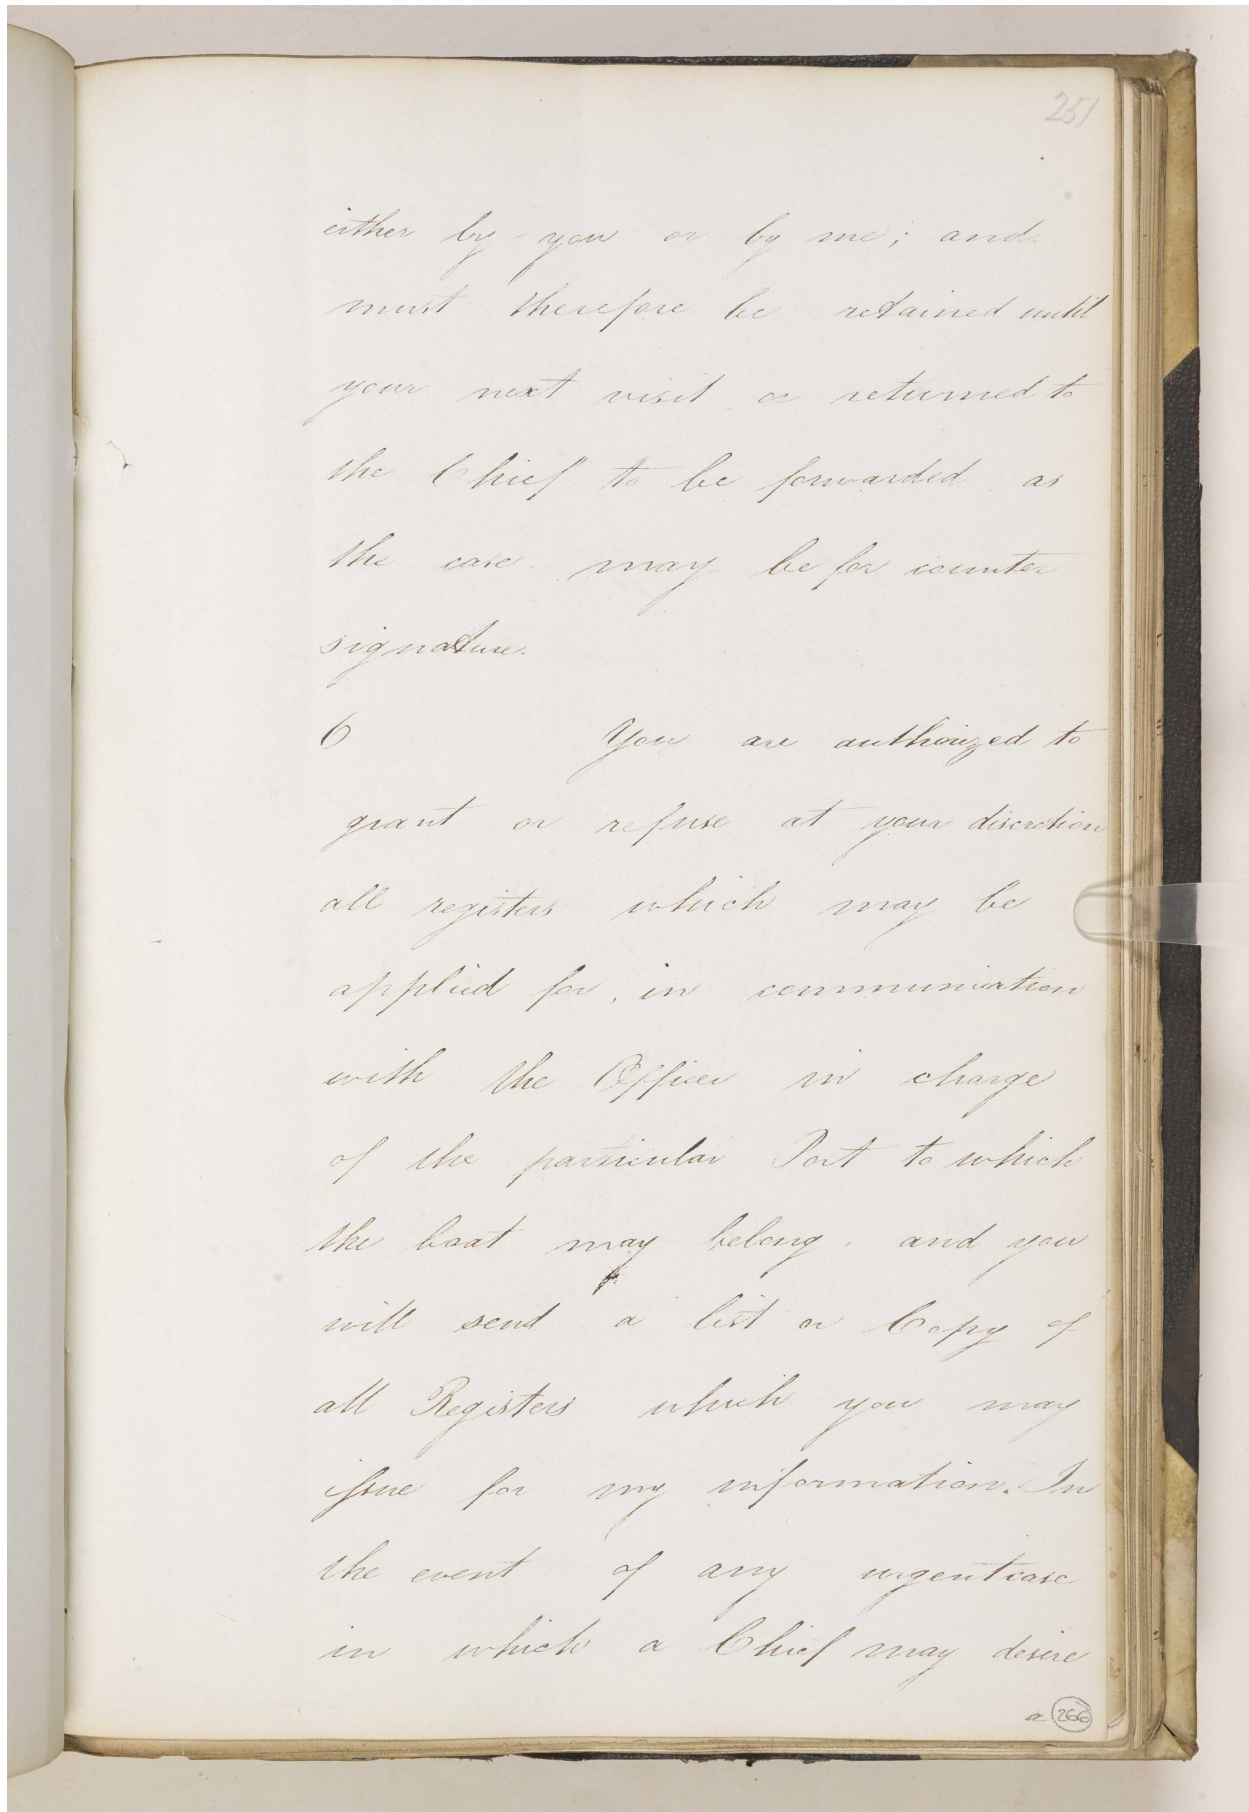 251
either by you or by me; and
must therefore be retained until
your next visit or returned to
the Chief to be forwarded as
the case may be for counter
signature.
6 You are authorized to
grant or refuse at your discretion
all registers which may be
applied for, in communication
with the Officer in charge
of the particular Port to which
the boat may belong. and you
will send a list or Copy of
all Registers which you may
issue for my information. In
the event of any urgent case
in which a Chief may desire
a 266